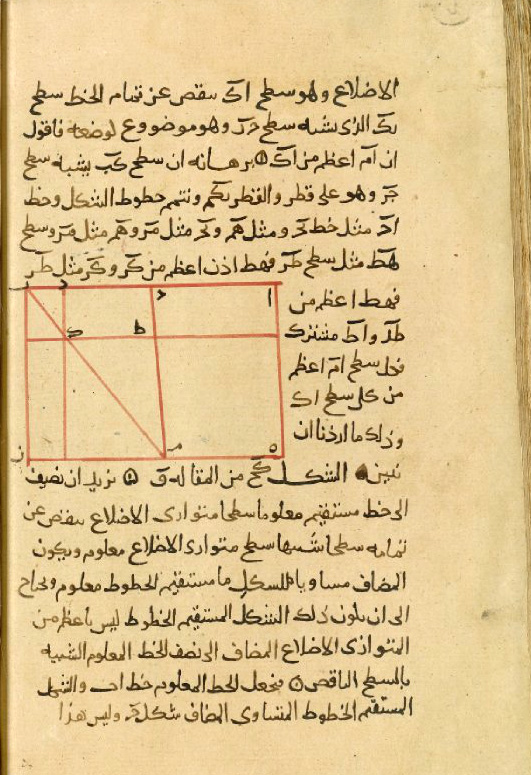 الاضلاع وهو سطح اك ينقص عن تمام الخط سطح
بك الذى يشبه سطح جد وهو موضوع لوضعه فاقول
ان ام اعظم من اك برهانه ان سطح كب يشبه سطح
جد وهو على قطر والقطر ونتمم خطوط الشكل وخط
اد مثل خط
هط مثل سطح طز فهط اذن اعظم من كز مثل طد
فهط اعظم من
طد واط مشترك
فكل سطح ام اعظم
من كل سطح اك
وذلك ما اردنا ان
نبين الشكل كح من المقالة و نريد ان نضيف
الى خط مستقيم معلوم سطحا متوازى الاضلاع ينقص عن
تمامه سطحا شبيها بسطح متوازى الاضلاع معلوم ويكون
المضاف مساويا للشكل ما مستقيم الخطوط معلوم ونحتاج
الى ان يكون ذلك الشكل المستقيم الخطوط ليس باعظم من
المتوازى الاضلاع المضاف الى نصف الخط المعلوم الشبيه
بالسطح الناقص فنجعل الخط المعلوم خط اب والشكل
المستقيم الخطوط المتساوى المضاف شكل وليس هذا
ا
د
ط
ك
م
ه
ن